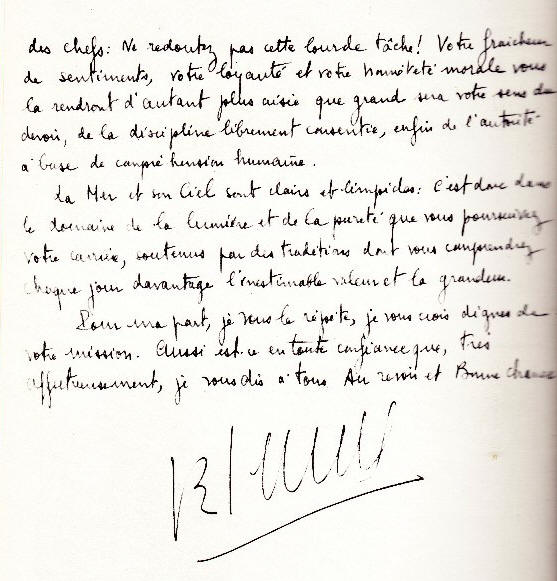 des chefs: Ne redoutez pas cette lourde tâche! Votre fraicheur
de sentiments, votre loyauté et votre honnêteté morale vous
la rendront d'autant plus aisée que grand sera votre sens du
devoir, de la discipline librement consentie, enfin de l'autorité
à base de compréhension humaine.
La Mer et son Ciel sont clairs et limpides: C'est donc dans
le domaine de la lumière et de la pureté que vous poursuivrez
votre carrière, soutenus par des traditions dont vous comprendrez
chaque jour davantage l'inestimable valeur et la grandeur.
Pour ma part, je vous le répète, je vous crois dignes de
votre mission. Aussi est-ce en toute confiance que, très
affectueusement, je vous dis à tous Au revoir et Bonne chance